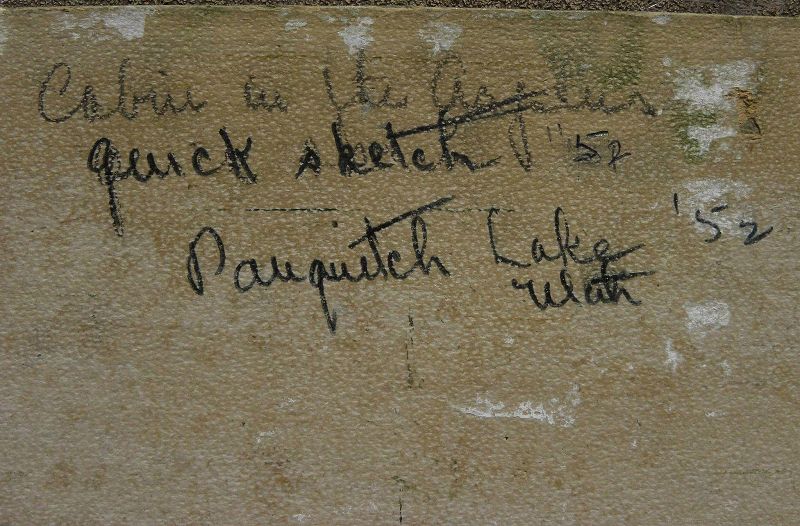 Cabin in the Aspens
quick sketch '52
Panguitch Lake '52
Utah